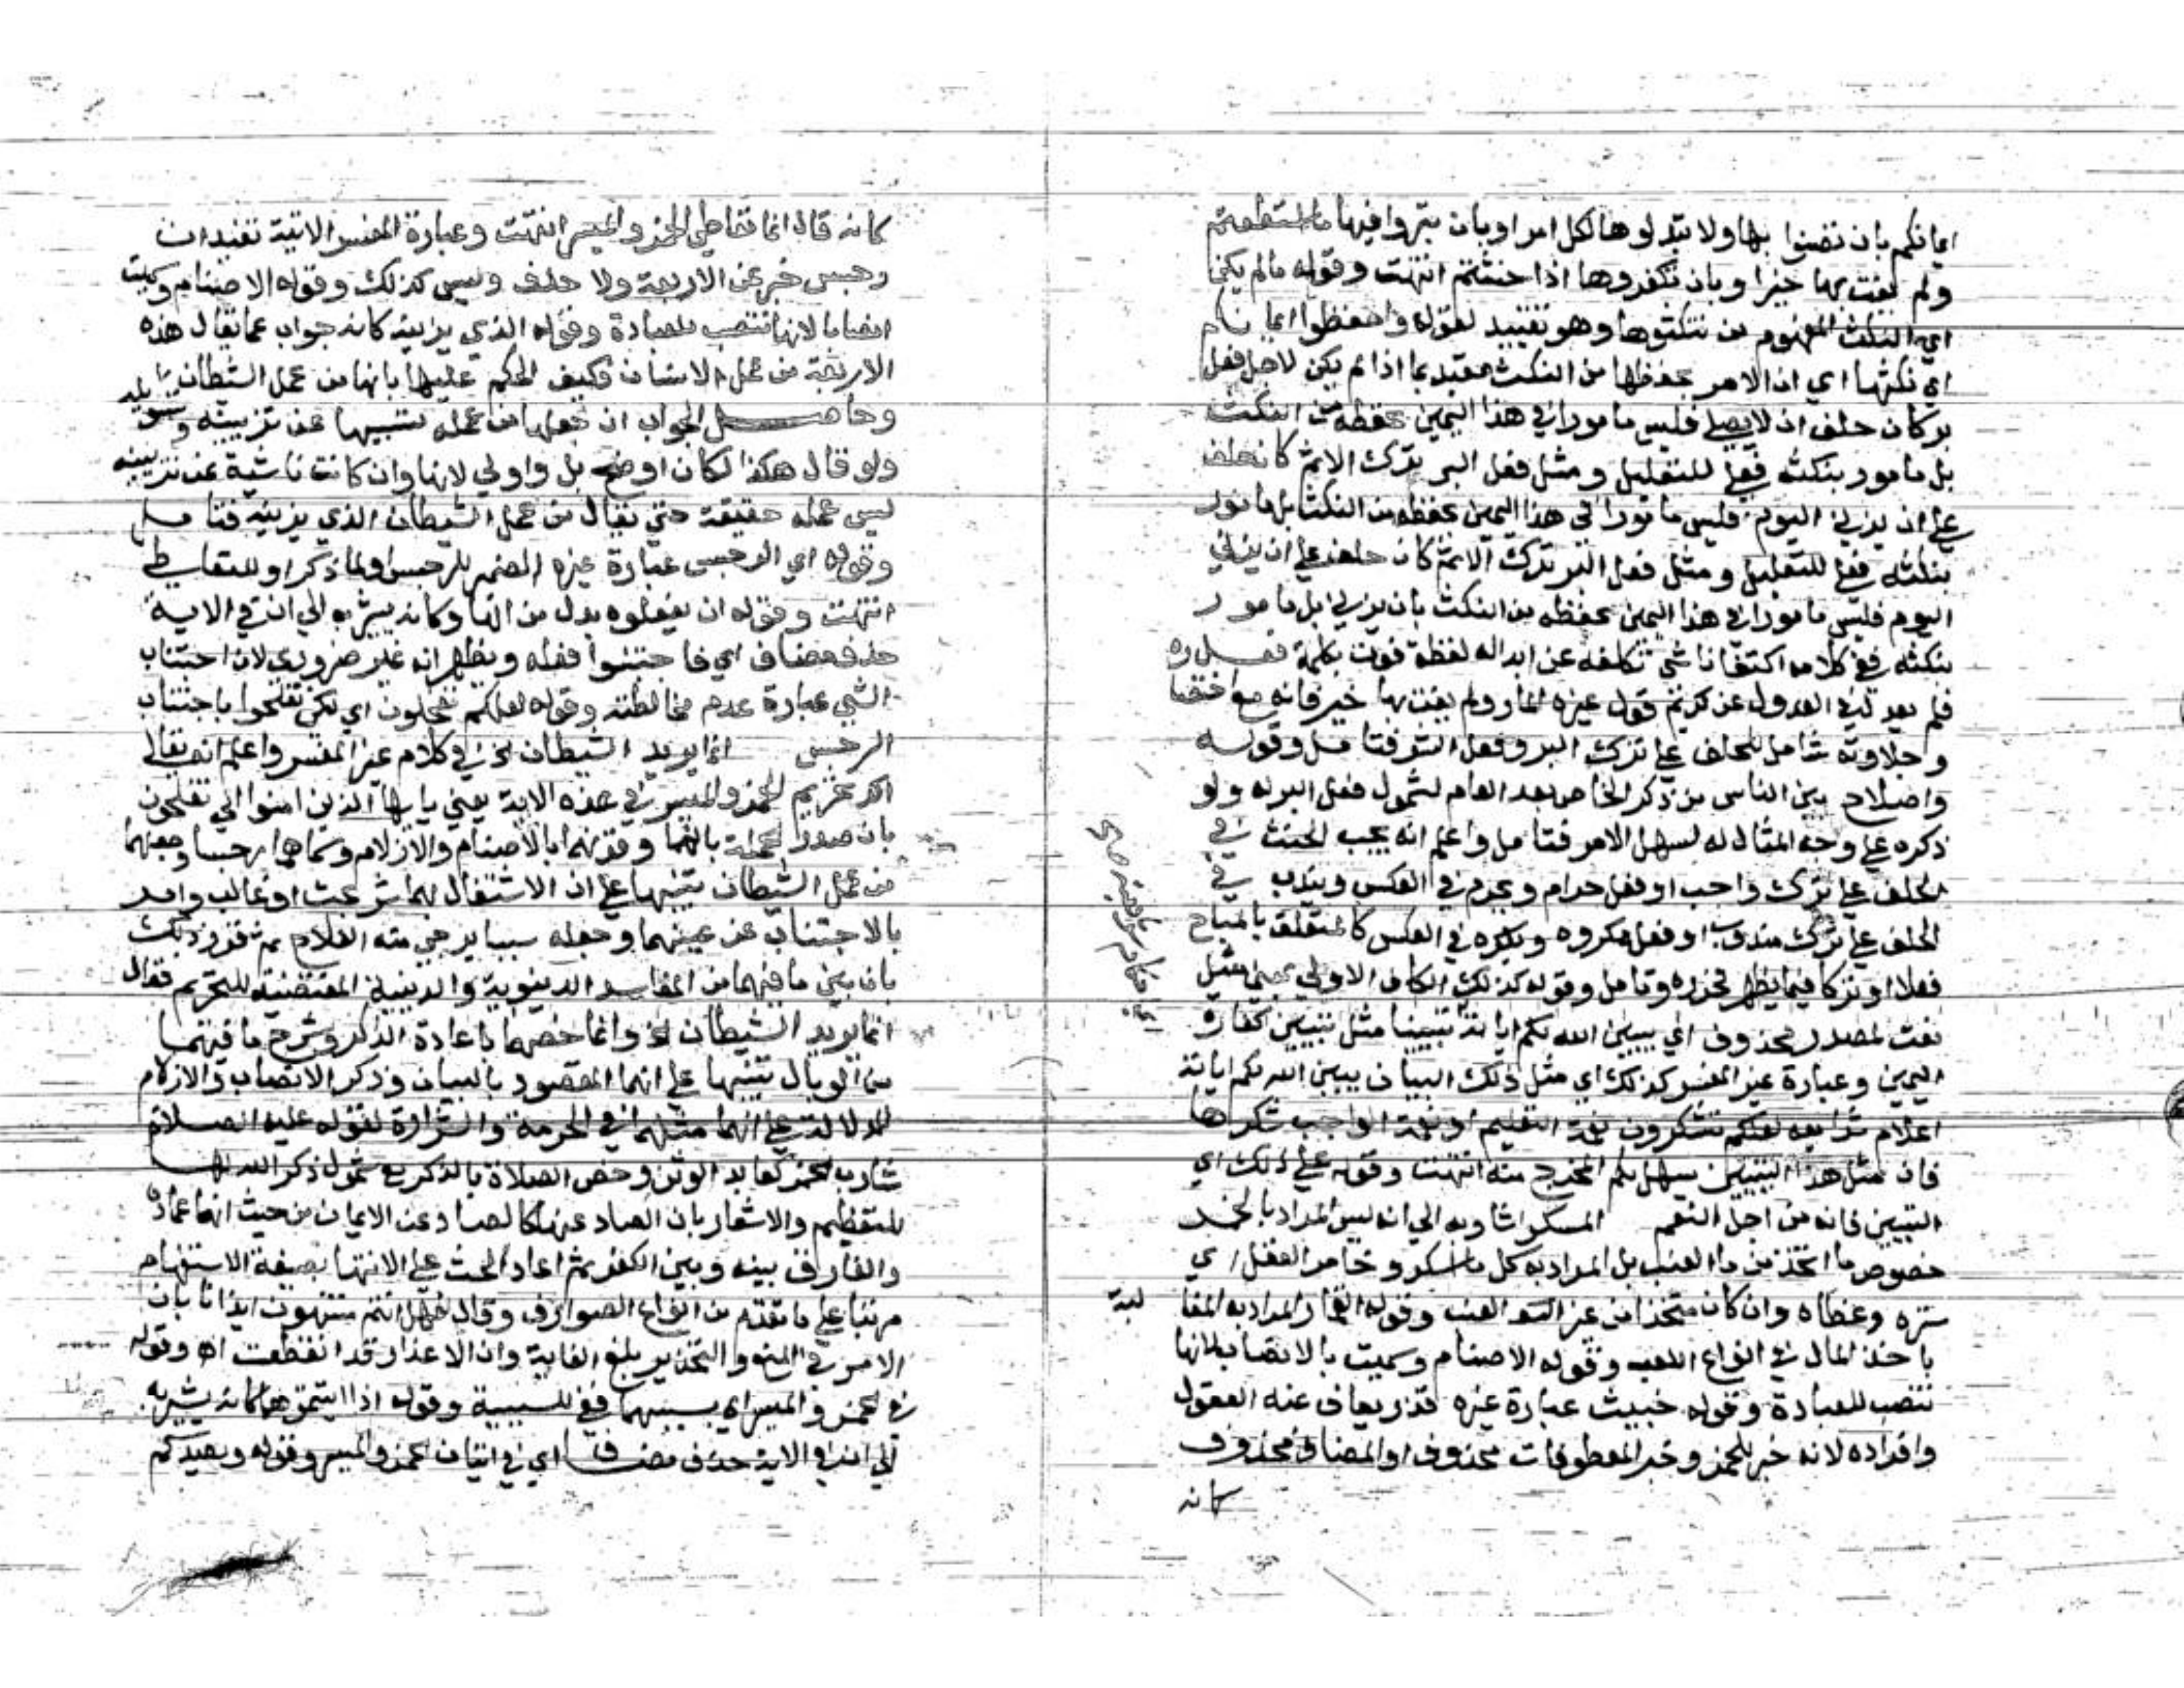 ايمانكم بان تضنوا بها ولا تبذلوها لكل امر او بان تبروا فيها ما استطعتم
ولم يفت بها خيرا وبان تكفروها اذا حنثتم انتهت وقوله مالم يكن
اي النكث المفهوم من تنكثوها وهو تقييد لقوله واحفظوا ايمانكم
اي نكثها اي ان الامر بحفظها من النكث مقيد بما اذا لم يكن لاجل فعل
بر كان حلف ان لا يصلي فليس مامورا في هذا اليمين بحفظه من النكث
بل مامور بنكثه ففي للتعليل ومثل فعل البر ترك الاثم كان حلف
علي ان يزني اليوم فليس مامورا في هذا اليمين بحفظه من النكث بل مامور
بنكثه ففي للتعليل ومثل فعل البر ترك الاثم كان حلف علي ان يزني
اليوم فليس مامورا في هذا اليمين بحفظه من النكث بان يزني بل مامور
بنكثه ففي كلامه اكتفا ناشي تكلفه عن ابداله لفظة فوت بكلمة فعل
فلم يعد لذي العدول عن كريم قول غيره المار ولم يفت بها خير فانه مع اختصا
وحلاوته شامل للحلف علي ترك البر وفعل الشر فتامل وقوله
واصلاح بين الناس من ذكر الخاص بعد العام لشمول فعل البر له ولو
ذكره علي وجه المثال له لسهل الامر فتامل واعلم انه يجب الحنث في
الحلف علي ترك واجب او فعل حرام ويحرم في العكس ويندب في
الحلف علي ترك مندوب او فعل مكروه ويكره في العكس كالمتعلق بالمباح
فعلا او تركا فيما يظهر فحرره وتامل وقوله كذلك الكاف الاولي بمعني مثل
نعت لمصدر محذوف اي يبين الله لكم اياته تبيينا مثل تبيين كفارة
اليمين وعبارة غير المفسر كذلك اي مثل ذلك البيان يبين الله لكم اياته
اعلام شرائعه لعلكم تشكرون نعمة التعليم او نعمة الواجب شكرها
فان مثل هذا التبيين يسهل لكم المخرج منه انتهت وقوله علي ذلك اي
التبيين فانه من اجل النعم المسكر اشار به الي انه ليس المراد بالخمر
خصوص ما اتخذ من ماء العنب بل المراد به كل ما اسكر وخامر العقل اي
ستره وغطاه وان كان متخذا من غير العنب وقوله القمار المراد به المغا لبة
باخذ المال في انواع اللعب وقوله الاصنام وسميت بالانصاب لانها
تنصب للعبادة وقوله خبيث عبارة غيره قذر يعاف عنه العقول
وافراده لانه خبر للخمر وخبر المعطوفات محذوف او المضاف محذوف
كانه
كانه قال انما تعاطي الخمر والميسر انتهت وعبارة المفسر الاتية تفيد ان
رجس خبر عن الاربعة ولا حذف وليس كذلك وقوله الاصنام وسميت
انصابا لانها تنصب للعبادة وقوله الذي يزينه كانه جواب عما يقال هذه
الاربعة من عمل الانسان فكيف الحكم عليها بانها من عمل الشيطان
وحاصل الجواب ان جعلها من عمله تسببها عن تزيينه
ولو قال هكذا لكان اوضح بل واولي لانها وان كانت ناشية عن تزيينه
ليس عمله حقيقة حتي يقال من عمل الشيطان الذي يزينه فتامل
وقوله اي الرجس عبارة غيره الضمير للرجس او لما ذكر او للتعاطي
انتهت وقوله ان تفعلوه بدل من الها وكانه يشير به الي ان في الاية
حذف مضاف اي فاجتنبوا فعله ويظهر انه غير ضروري لان اجتناب
الشي عبارة عدم مخالطته وقوله لعلكم تفلحون اي لكي تفلحوا باجتناب
الرجس انما يريد الشيطان الخ في كلام غير المفسر واعلم انه تعالي
اكد تحريم الخمر والميسر في هذه الاية يعني يا ايها الذين امنوا الي تفلحون
بان صدر الجملة بانما وقرنهما بالاصنام والازلام وسماهما رجسا وجعلهما
من عمل الشيطان تنبيها علي ان الاشتغال بهما شر بحت او غالب وامر
بالاجتناب عن عينهما وجعله سببا يرجي منه الفلاح ثم قرر ذلك
بان بين ما فيهما من المفاسد الدينوية والدينية المقتضية للتحريم فقال
انما يريد الشيطان الخ وانما خصهما باعادة الذكر وشرح ما فيهما
من الوبال تنبيها علي انهما المقصود بالبيان وذكر الانصاب والازلام
للدلالة علي انهما مثلهما في الحرمة والشرارة لقوله عليه الصلاة
شارب الخمر كعابد الوثن وخص الصلاة بالذكر مع شمول ذكر الله لها
للتعظيم والاشعار بان الصاد عنها كالصاد عن الايمان من حيث انها عماده
والفارق بينه وبين الكفر ثم اعاد الحث علي الانتها بصيغة الاستفهام
مرتبا علي ما تقدم من انواع الصوارف وقال فهل انتم منتهون ايذانا بان
الامر في المنع والتحذير بلغ الغاية وان الاعذار قد انقطعت اه وقوله
في الخمر والميسر اي بسببهما ففي للسببية وقوله اذا اتيتموهما كانه يشير به
الي ان في الاية حذف مضاف اي في اتيان الخمر والميسر وقوله ويصدكم